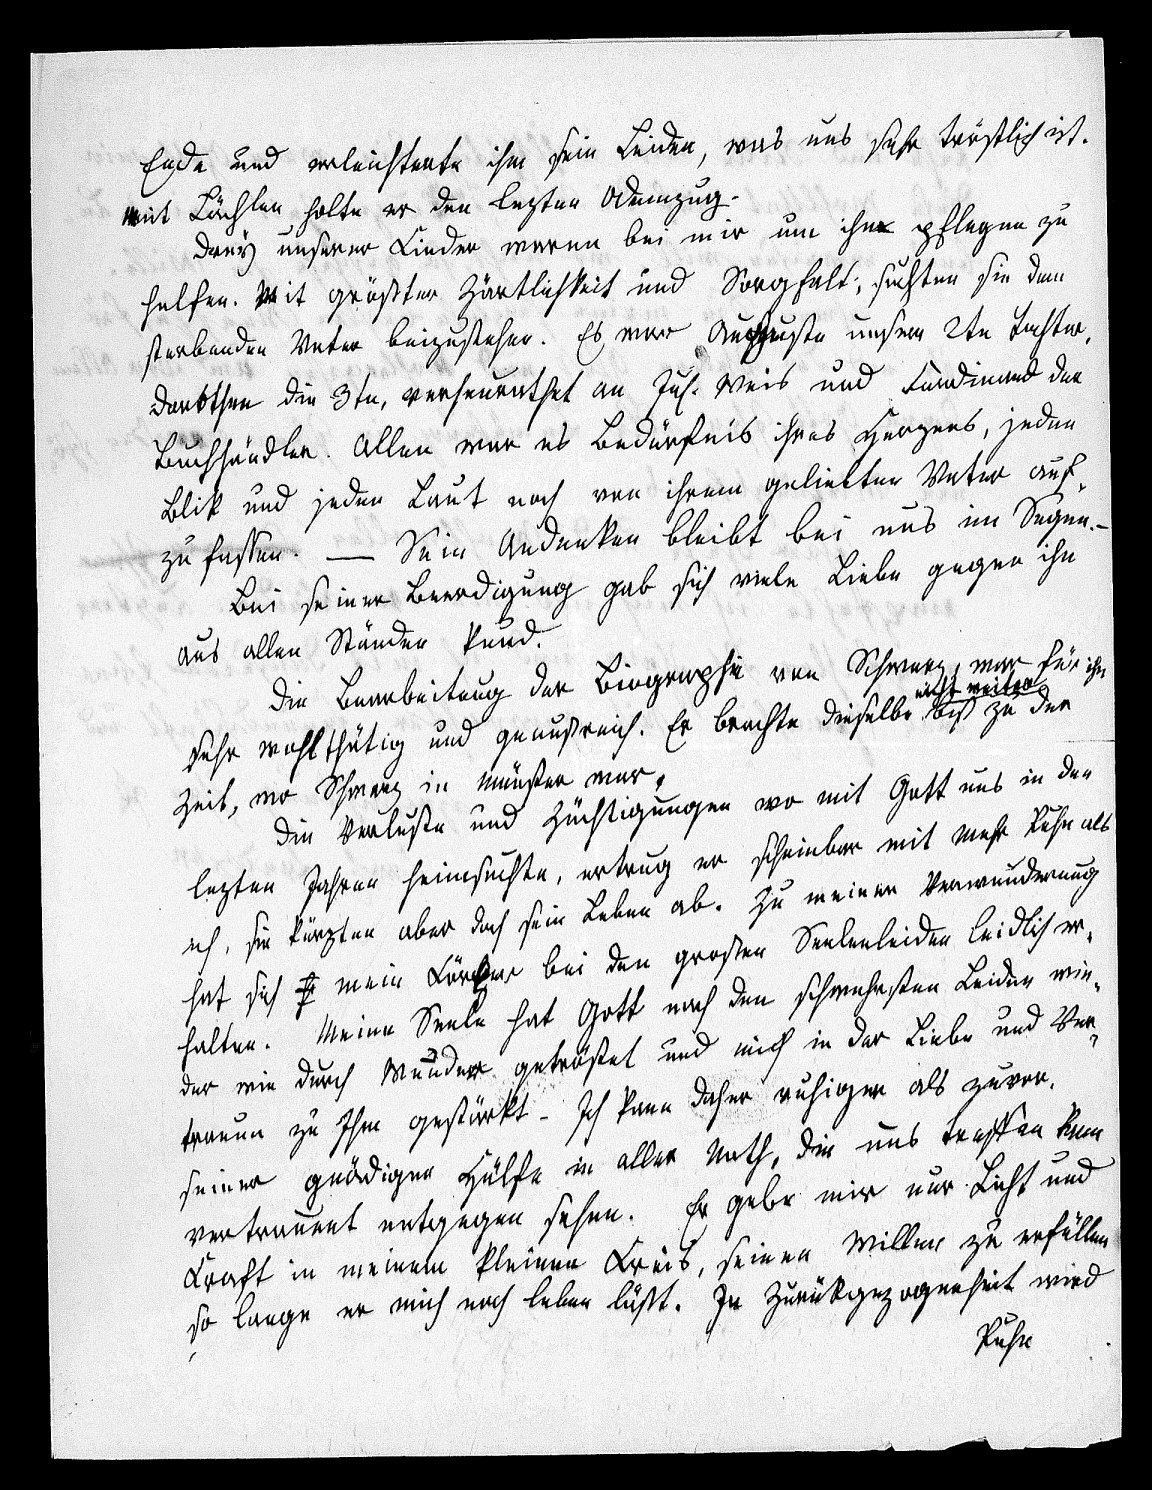 Ende und erleichterte ihm sein Leiden, was uns sehr tröstlich ist.
Mit Lächlen holte er den lezten Odemzug.
Drey unserer Kinder waren bei mir um ihn pflegen zu
helfen. Mit größter Zärtlichkeit und Sorgfalt, suchten sie dem
sterbenden Vater beizustehen. Es war Auguste unsere 2te Tochter,
Dorothee die 3te, verheurathet an Jul. Weis und Ferdinand der
Buchhändler. Allen war es Bedürfnis ihres Herzens, jeden
Blik und jeden Laut noch von ihrem geliebten Vater auf-
zufassen. — Sein Andenken bleibt bei uns im Segen.–
Bei seiner Beerdigung gab sich viele Liebe gegen ihn
aus allen Ständen kund.
Die Bearbeitung der Biographie von Schwarz, war für ihn
sehr wohlthätig und genußreich. Er brachte dieselbe nicht weiter biß zu der
Zeit, wo Schwarz in Münster war.
Die Verluste und Züchtigungen wo mit Gott uns in den
lezten Jahren heimsuchte, ertrug er scheinbar mit mehr Ruhe als
ich, sie kürzten aber doch sein Leben ab. Zu meiner Verwunderung
hat sich mein Körper bei den großen Seelenleiden leidlich er-
halten. Meine Seele hat Gott nach den schwehrsten Leiden wie-
der wie durch Wunder getröstet und mich in der Liebe und Ver-
trauen zu Ihm gestärkt – Ich kann daher ruhiger als zuvor,
seiner gnädigen Hülfe in aller Noth, die uns treffen kann
vertrauent entgegen sehen. Er gebe mir nur Licht und
Kraft in meinem kleinen Kreis, seinen Willen zu erfüllen
so lange er mich noch leben läßt. In Zurükgezogenheit wird
Ruhe